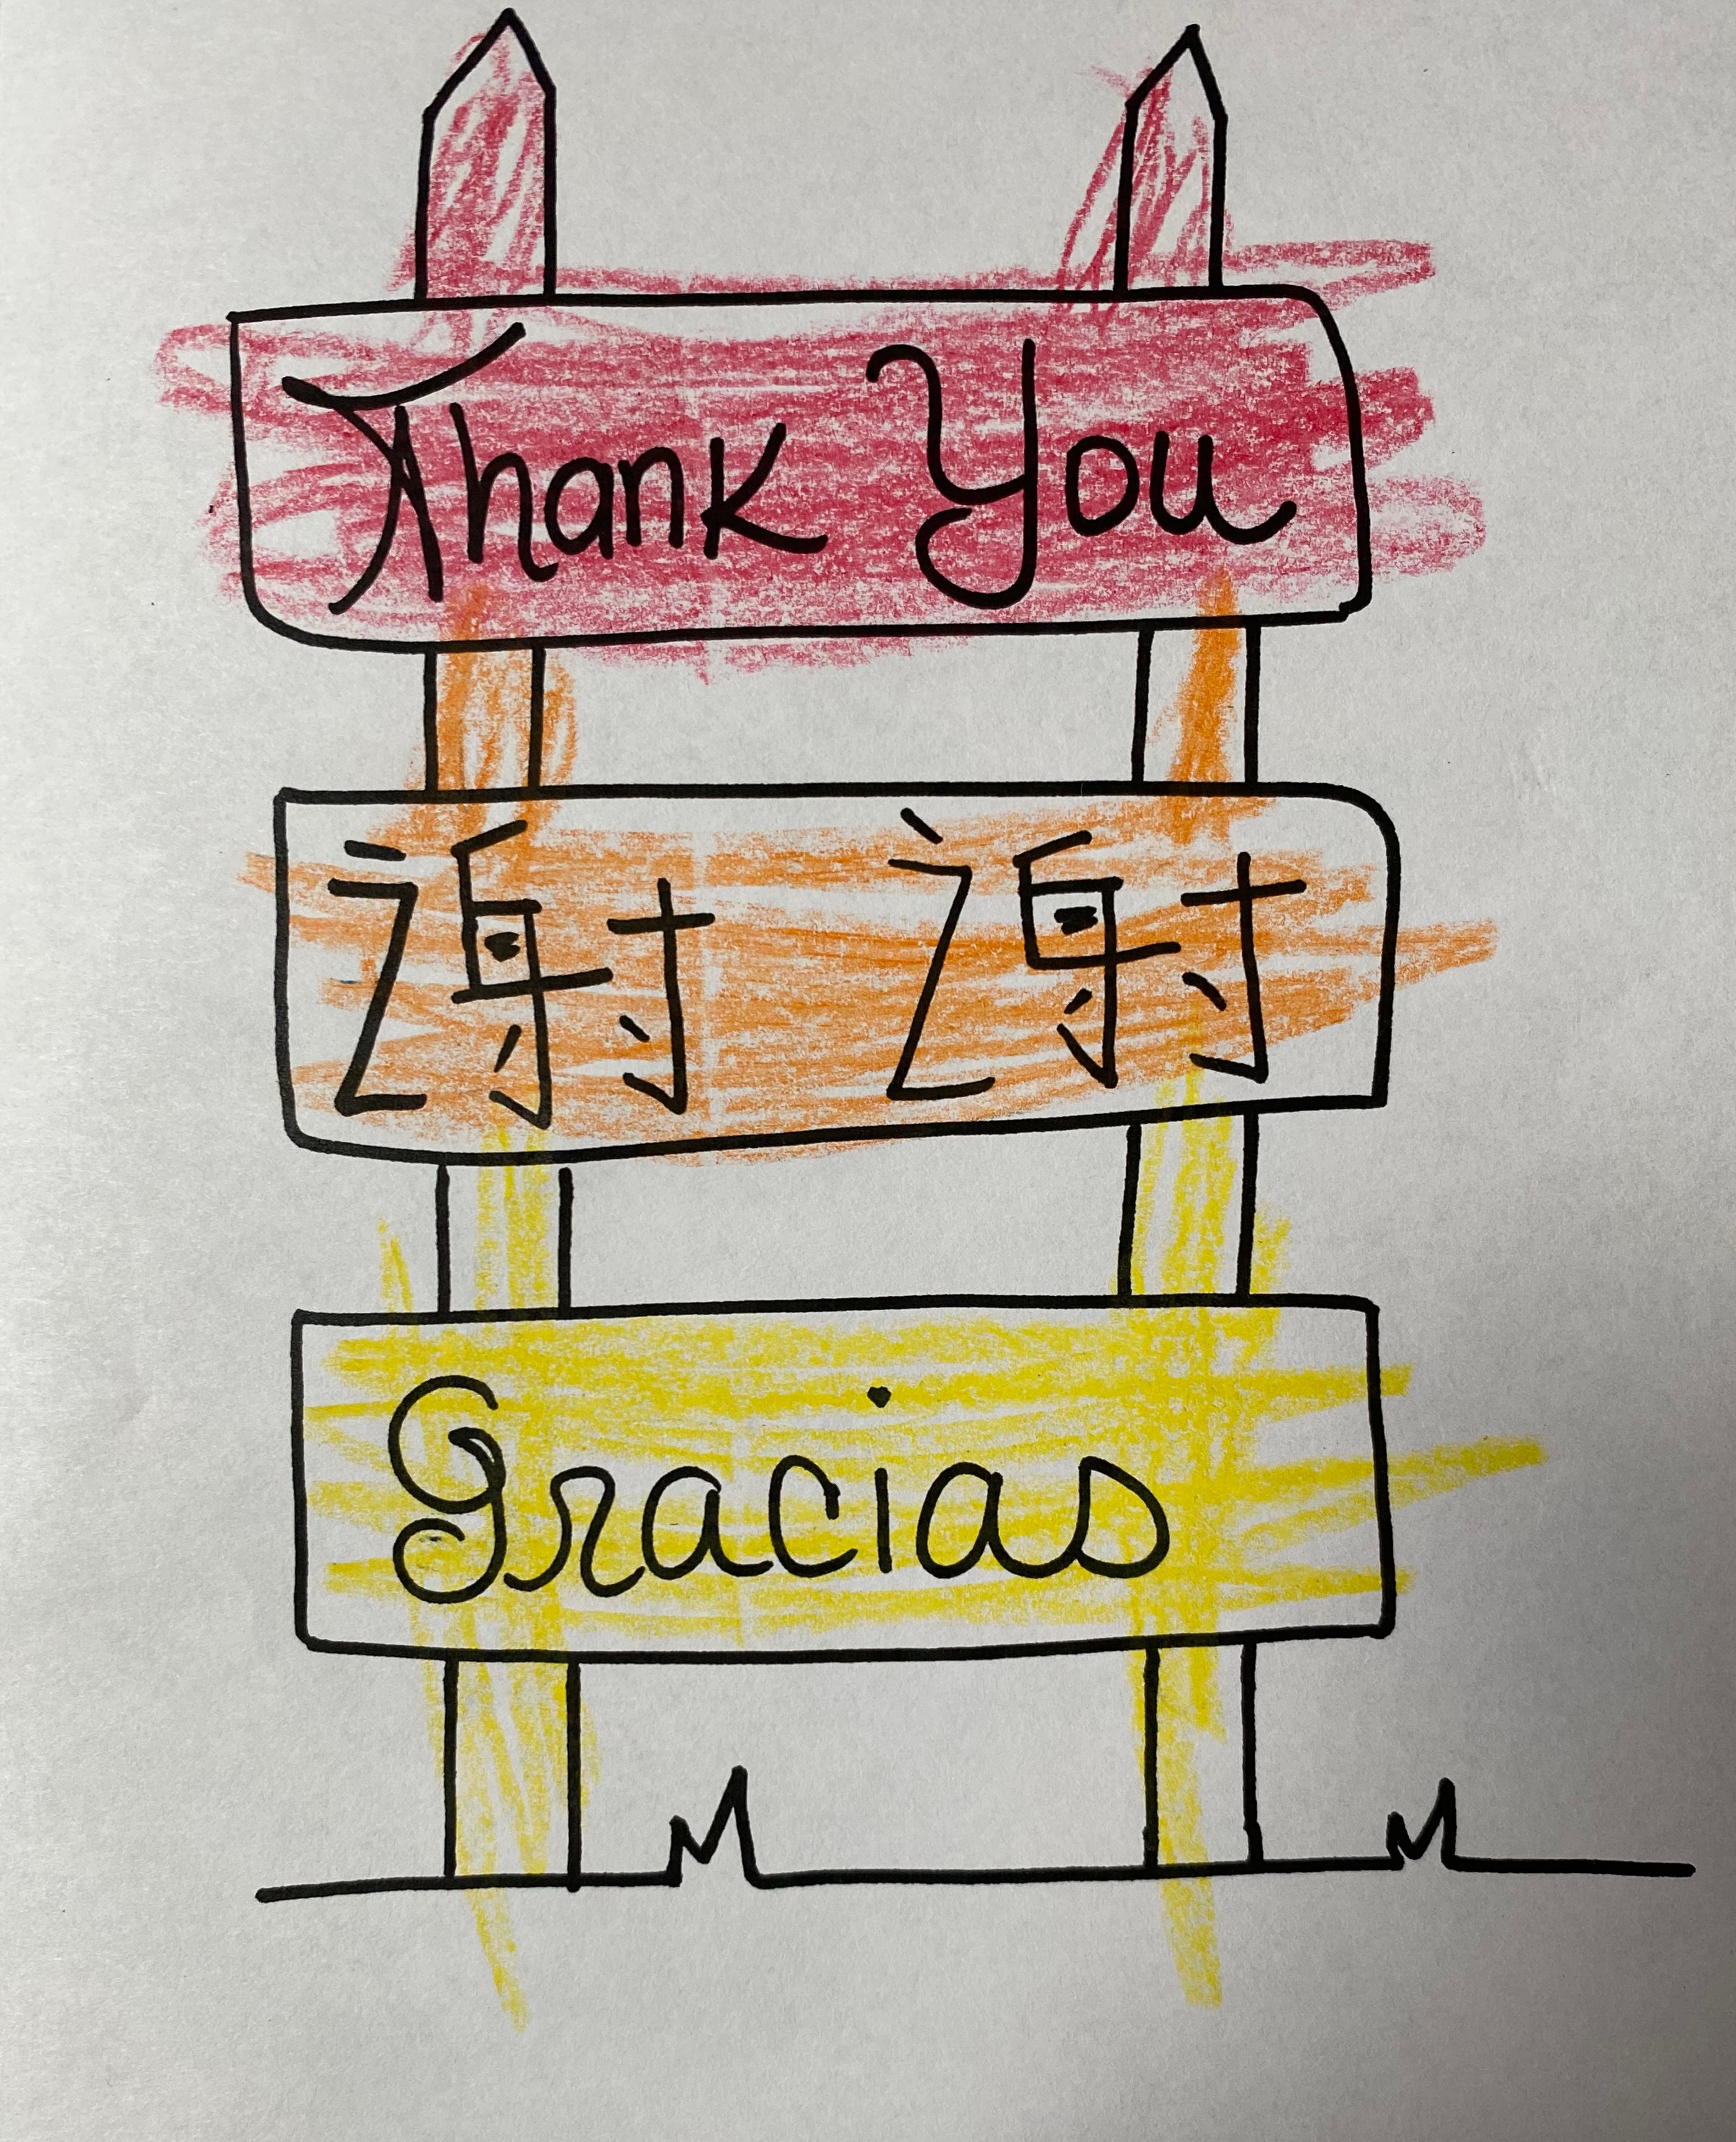 Thank You
谢谢
Gracias